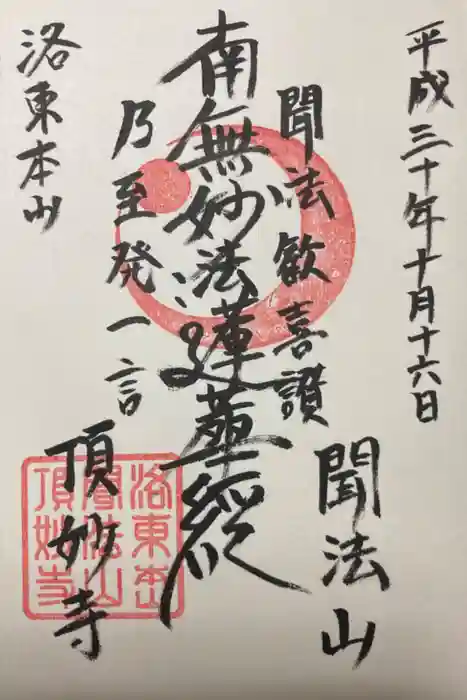 平成三十年十月十六日
聞法歓喜讃
聞法山
南無妙法蓮華経
乃至発一言
頂妙寺
洛東本山
洛東本山
聞法山
頂妙寺